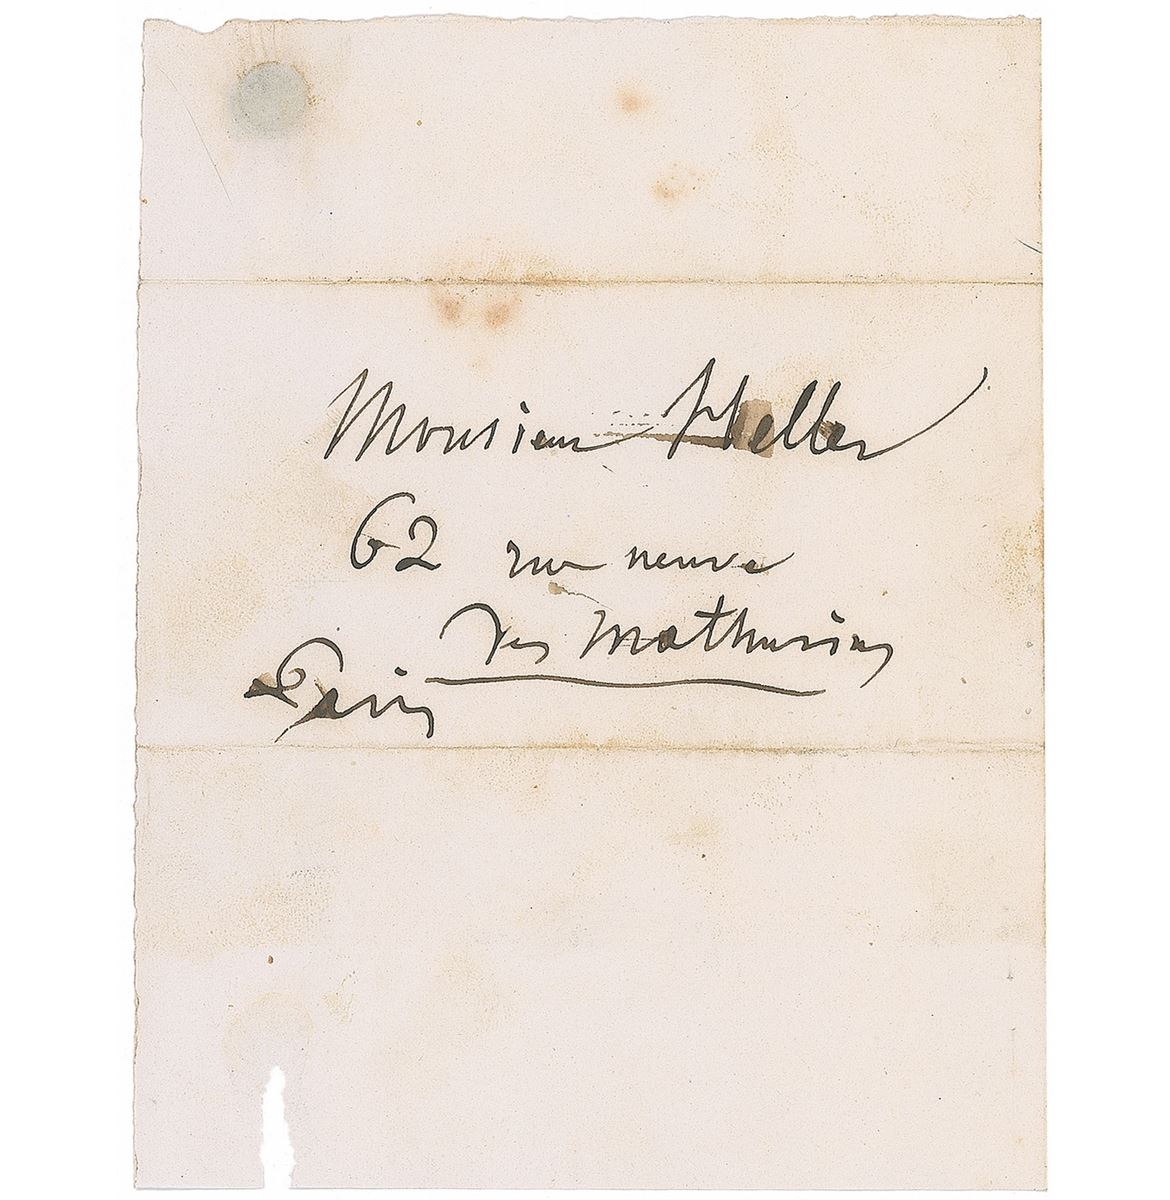 Monsieur Heller
62 rue neuve
des Mathurins
Paris